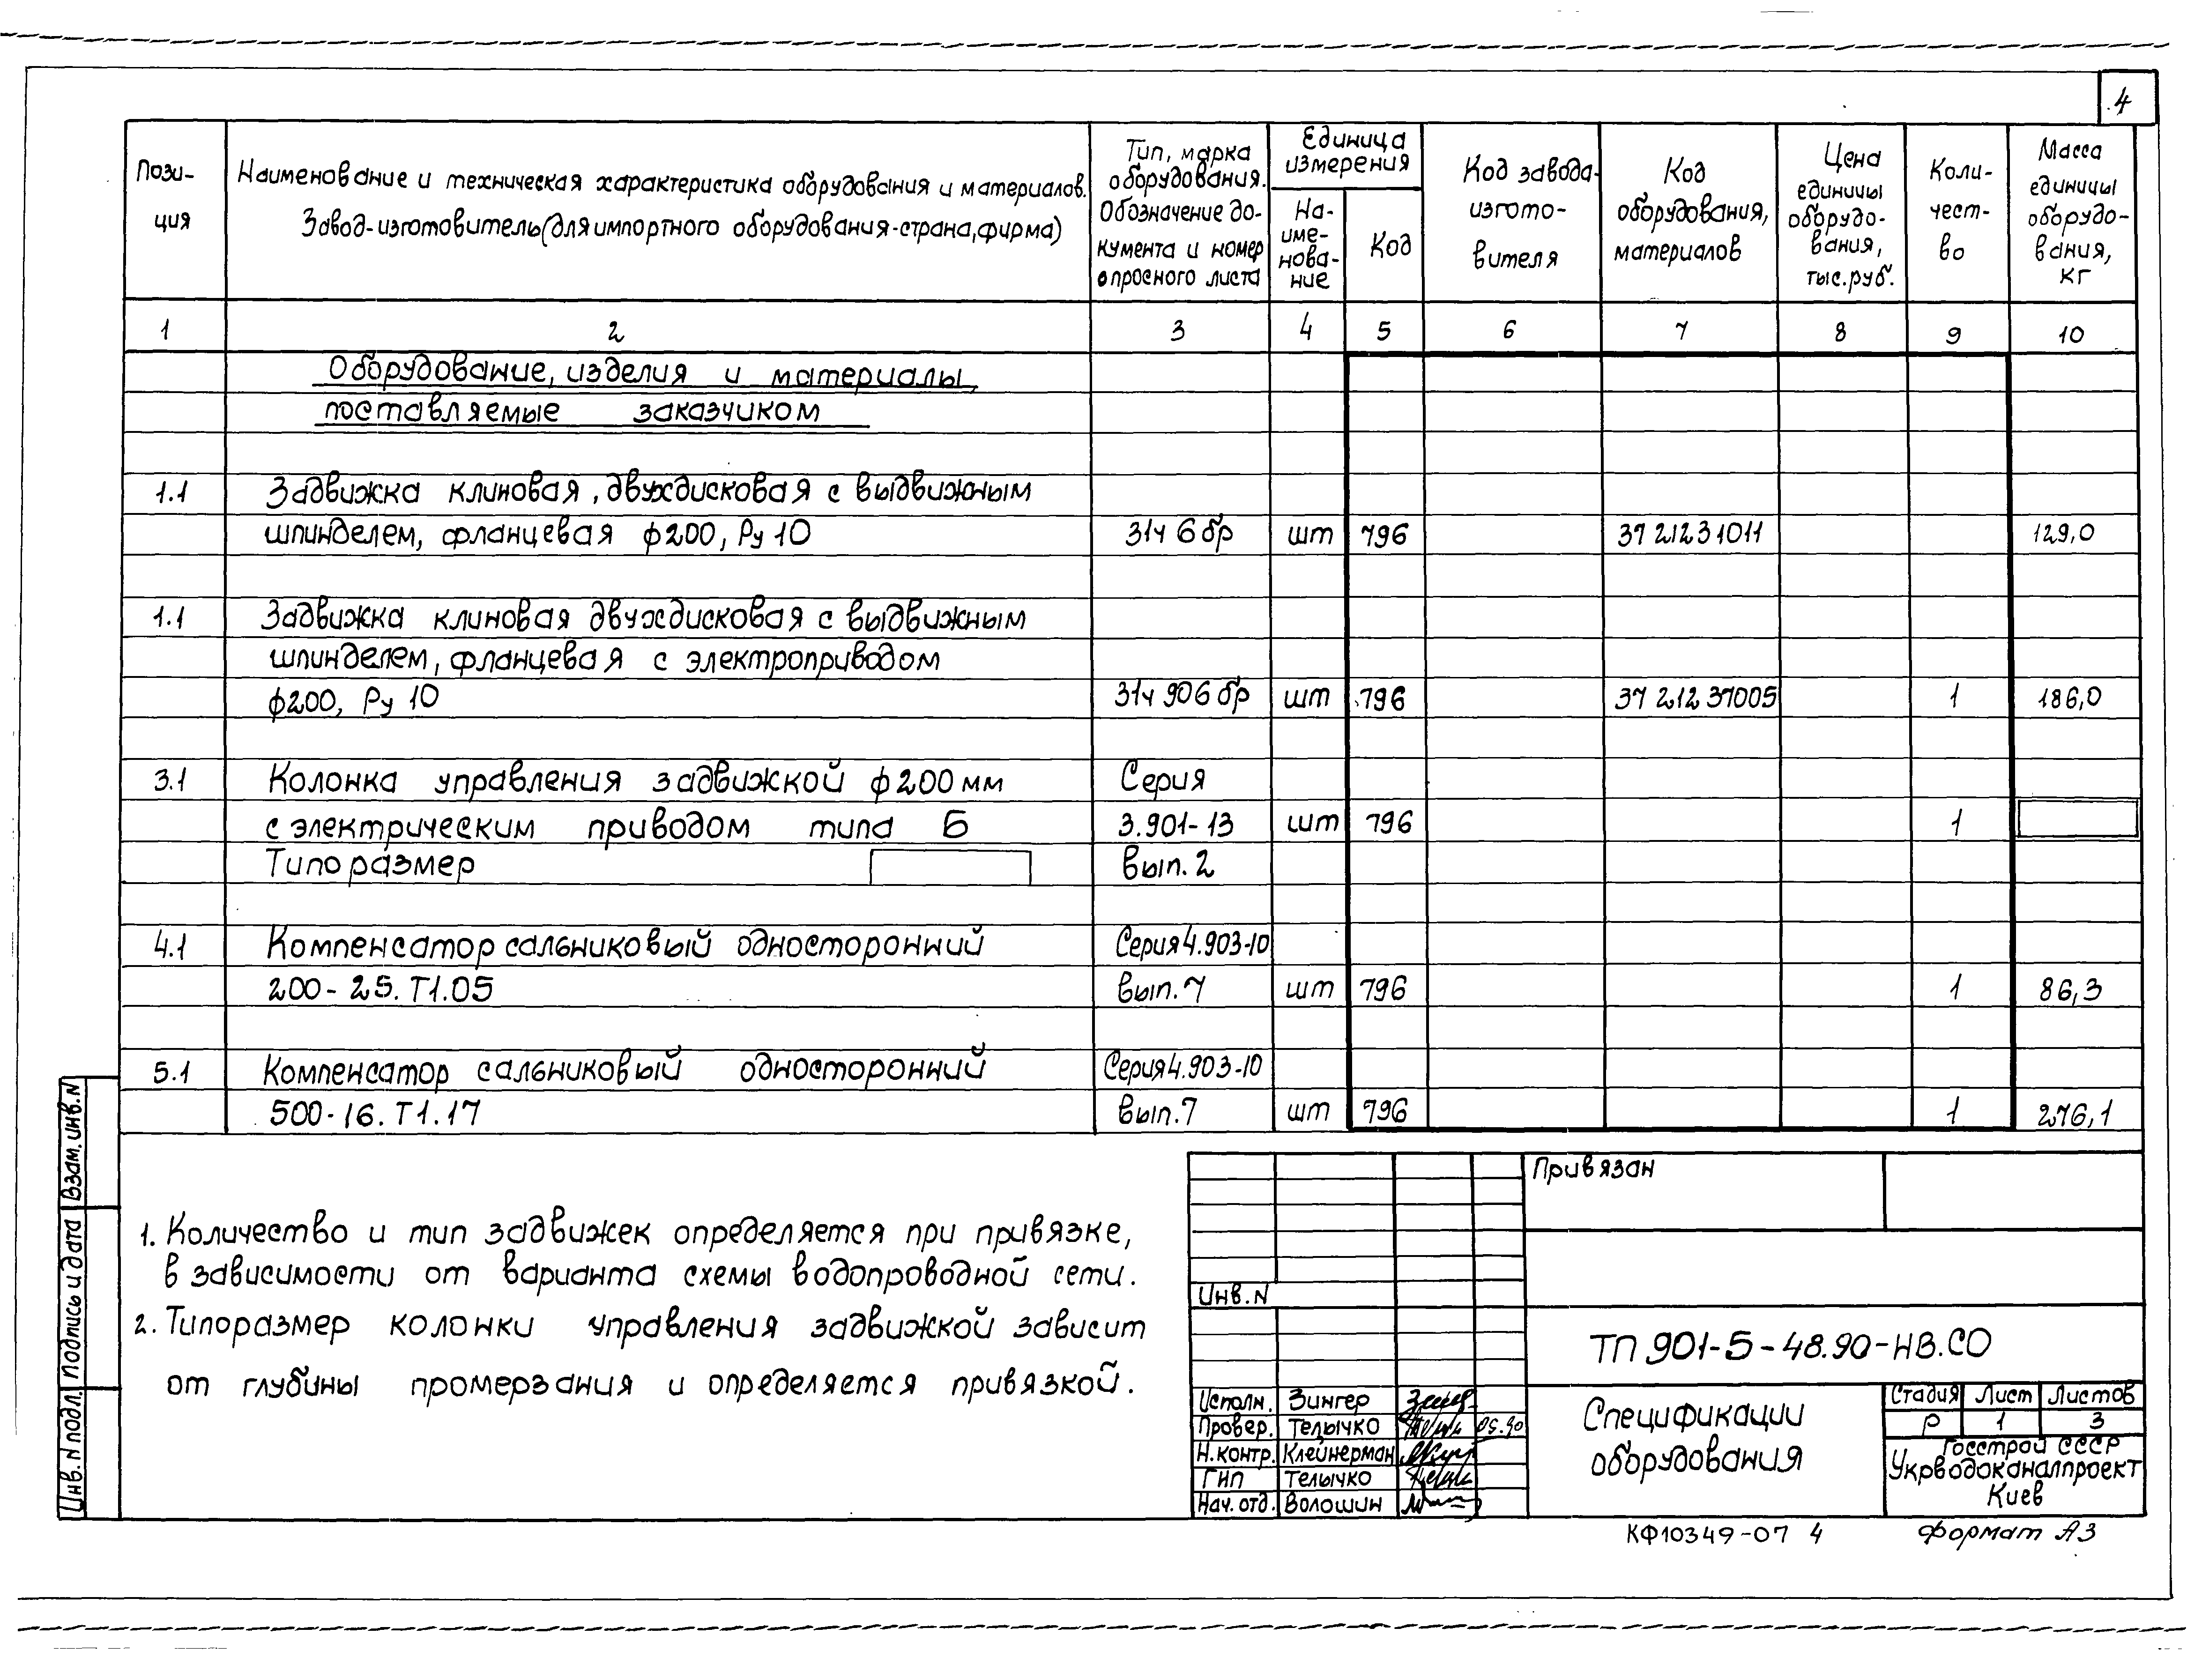 4
Пози-
ция
Наименование и техническая характеристика оборудования и материалов.
Завод-изготовитель (для импортного оборудования-страна, фирма)
Тип, марка
оборудования.
Обозначение до-
кумента и номер
опросного листа
Единица
измерения
На-
име-
нова-
ние
Код
Код завода-
изгото-
вителя
Код
оборудования,
материалов
Цена
единицы
оборудо-
вания,
тыс.руб.
Коли-
чест-
во
Масса
единицы
оборудо-
вания,
кг
1 2 3 4 5 6 7 8 9 10
Оборудование, изделия и материалы,
поставляемые заказчиком
1.1 Задвижка клиновая, двухдисковая с выдвижным
шпинделем, фланцевая ф200, Ру 10 31ч 6 бр шт 796 37 2123 1011 129,0
1.1 Задвижка клиновая двухдисковая с выдвижным
шпинделем, фланцевая с электроприводом
ф200, Ру 10 31ч 906 бр шт 796 37 212 37005 1 186,0
3.1 Колонка управления задвижкой ф200 мм Серия
с электрическим приводом типа Б 3.901-13 шт 796 1
Типоразмер вып. 2
4.1 Компенсатор сальниковый односторонний Серия 4.903-10
200-25.Т1.05 вып. 7 шт 796 1 86,3
5.1 Компенсатор сальниковый односторонний Серия 4.903-10
500-16.Т1.17 вып. 7 шт 796 1 276,1
1. Количество и тип задвижек определяется при привязке,
в зависимости от варианта схемы водопроводной сети.
2. Типоразмер колонки управления задвижкой зависит
от глубины промерзания и определяется привязкой.
Взам. инв. N
Подпись и дата
Инв. N подл.
Привязан
Инв. N
ТП 901-5-48.90-НВ.СО
Исполн. Зингер
Провер. Телычко 05.90
Н.контр. Клейнерман
ГИП Телычко
Нач. отд. Волошин
Спецификации
оборудования
Стадия Лист Листов
Р 1 3
Госстрой СССР
Укрводоканалпроект
Киев
КФ10349-07 4 Формат А3